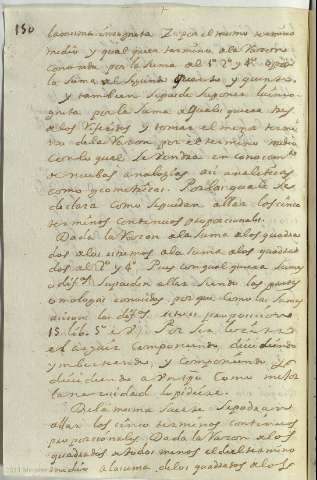 150
la suma incognita. Y por el mismo termino
medio y qualquiera termino a la Varon
contraria por la Suma al 1º 2º y 4º o por
la Suma al Segundo quarto y quinto
y tambien Se puede Suponer la incog
nita por la Suma a quales quiera tres
a los y tomar el mismo termi
no de la Varon por el termino medio
Con lo qual Se vendra en conocimto
de nuebas analogias asi analiticas
como geometricas. Por lo qual se
declara como Se puedan allar los cinco
terminos continuos proporcionales
Dada la Varon a la Suma a los quadra
dos a los extremos a la Suma a los quadra
dos al 2º y 4º Pues con qual quiera Suma
o difª Se puedan allar Siendo las partes
omologas conocidas por que como las Sumas
las difª proposicion
15 lib. 5º Por Ser licito
el arguir componiendo, dividiendo
y inbirtiendo, y Componiendo y
dividiendo a Un tpo Como mejor
la necesidad lo pidiere.
De la misma Suerte Se podran
allar los cinco terminos continuos
proporcionales Dada la Varon a los
quadrados a todos menos el del termino
medio a la suma de los quadrados a los